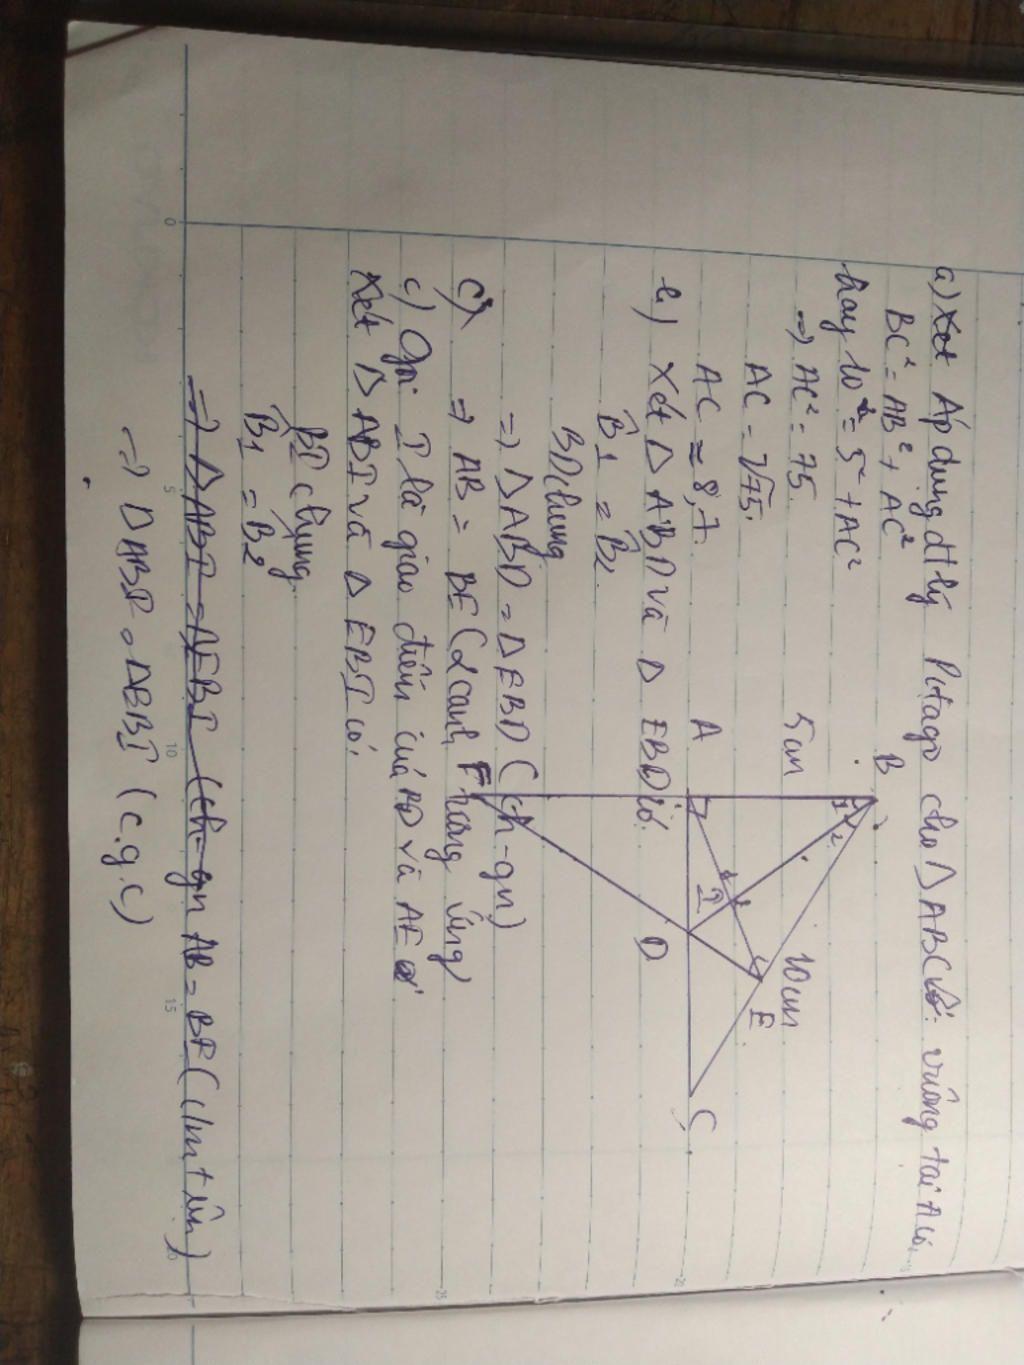 a) Xét Áp dụng đlý Pitago cho △ABC vuông tại A có
BC² = AB² + AC²
hay 10² = 5² + AC²
⇒ AC² = 75.
AC = √75.
AC ≈ 8,7.
B
5cm
10cm
1
2
A
I
E
D
C
F
b) Xét △ ABD và △ EBD có.
B̂1 = B̂2.
BD chung
⇒ △ABD = △EBD (ch-gn)
c) ⇒ AB = BE (2 cạnh tương ứng)
c) Gọi I là giao điểm của BD và AE
Xét △ ABI và △ EBI có.
BI chung.
B̂1 = B̂2
⇒ △ABI = △EBI (ch-gn AB = BE (cm trên)
⇒ △ABI = △EBI (c.g.c)